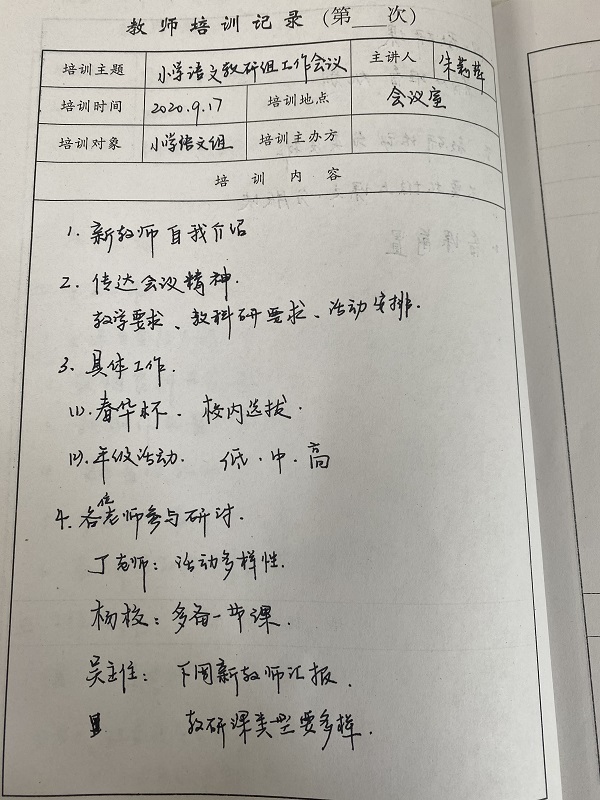 教师培训记录（第 次）
培训主题 小学语文教研组工作会议 主讲人 朱
培训时间 2020.9.17 培训地点 会议室
培训对象 小学语文组 培训主办方
培训内容
1. 新教师自我介绍
2. 传达会议精神.
教学要求、教科研要求、活动安排.
3. 具体工作.
(1). 春华杯. 校内选拔.
(2). 年级活动. 低.中.高
4. 各位老师参与研讨.
丁老师：活动多样性.
杨校：多备一节课.
吴主任：下周新教师汇报.
教研课类型要多样.